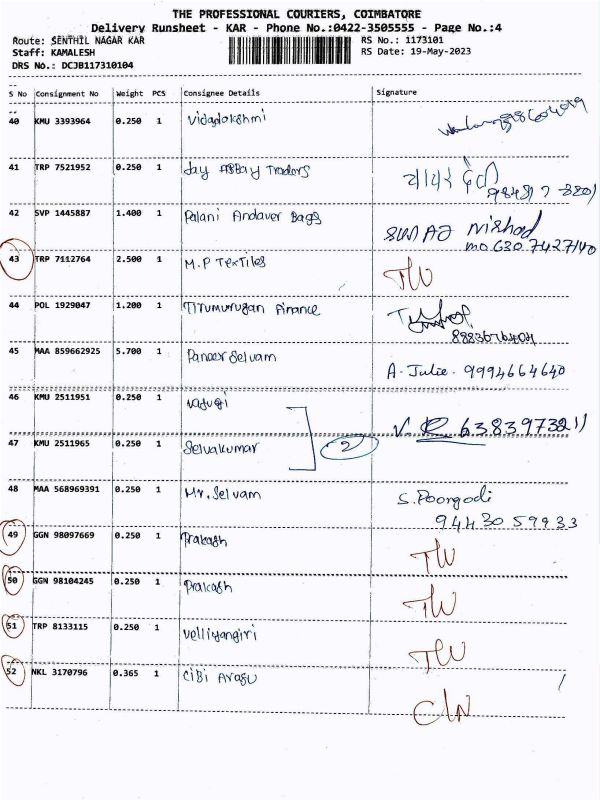 THE PROFESSIONAL COURIERS, COIMBATORE
Delivery Runsheet - KAR - Phone No.:0422-3505555 - Page No.:4
Route: SENTHIL NAGAR KAR
Staff: KAMALESH
DRS No.: DCJB117310104
RS No.: 1173101
RS Date: 19-May-2023
S No Consignment No Weight PCS Consignee Details Signature
40 KMU 3393964 0.250 1 Vidyalakshmi
41 TRP 7521952 0.250 1 Jay Traders
42 SVP 1445887 1.400 1 Palani Andaver Bags Nishad
mo.630.7427140
43 TRP 7112764 2.500 1 M.P Textiles
44 POL 1929047 1.200 1 Tirumurugan Finance
45 MAA 859662925 5.700 1 PaneerSelvam A. Julie. 9994664640
46 KMU 2511951 0.250 1
47 KMU 2511965 0.250 1 Selvakumar 2
48 MAA 568969391 0.250 1 Mr. Selvam S. Poorgodi
94430 59933
49 GGN 98097669 0.250 1 Prakash
50 GGN 98104245 0.250 1 Prakash
51 TRP 8133115 0.250 1 Velliyangiri
52 NKL 3170796 0.365 1 Cibi Arasu